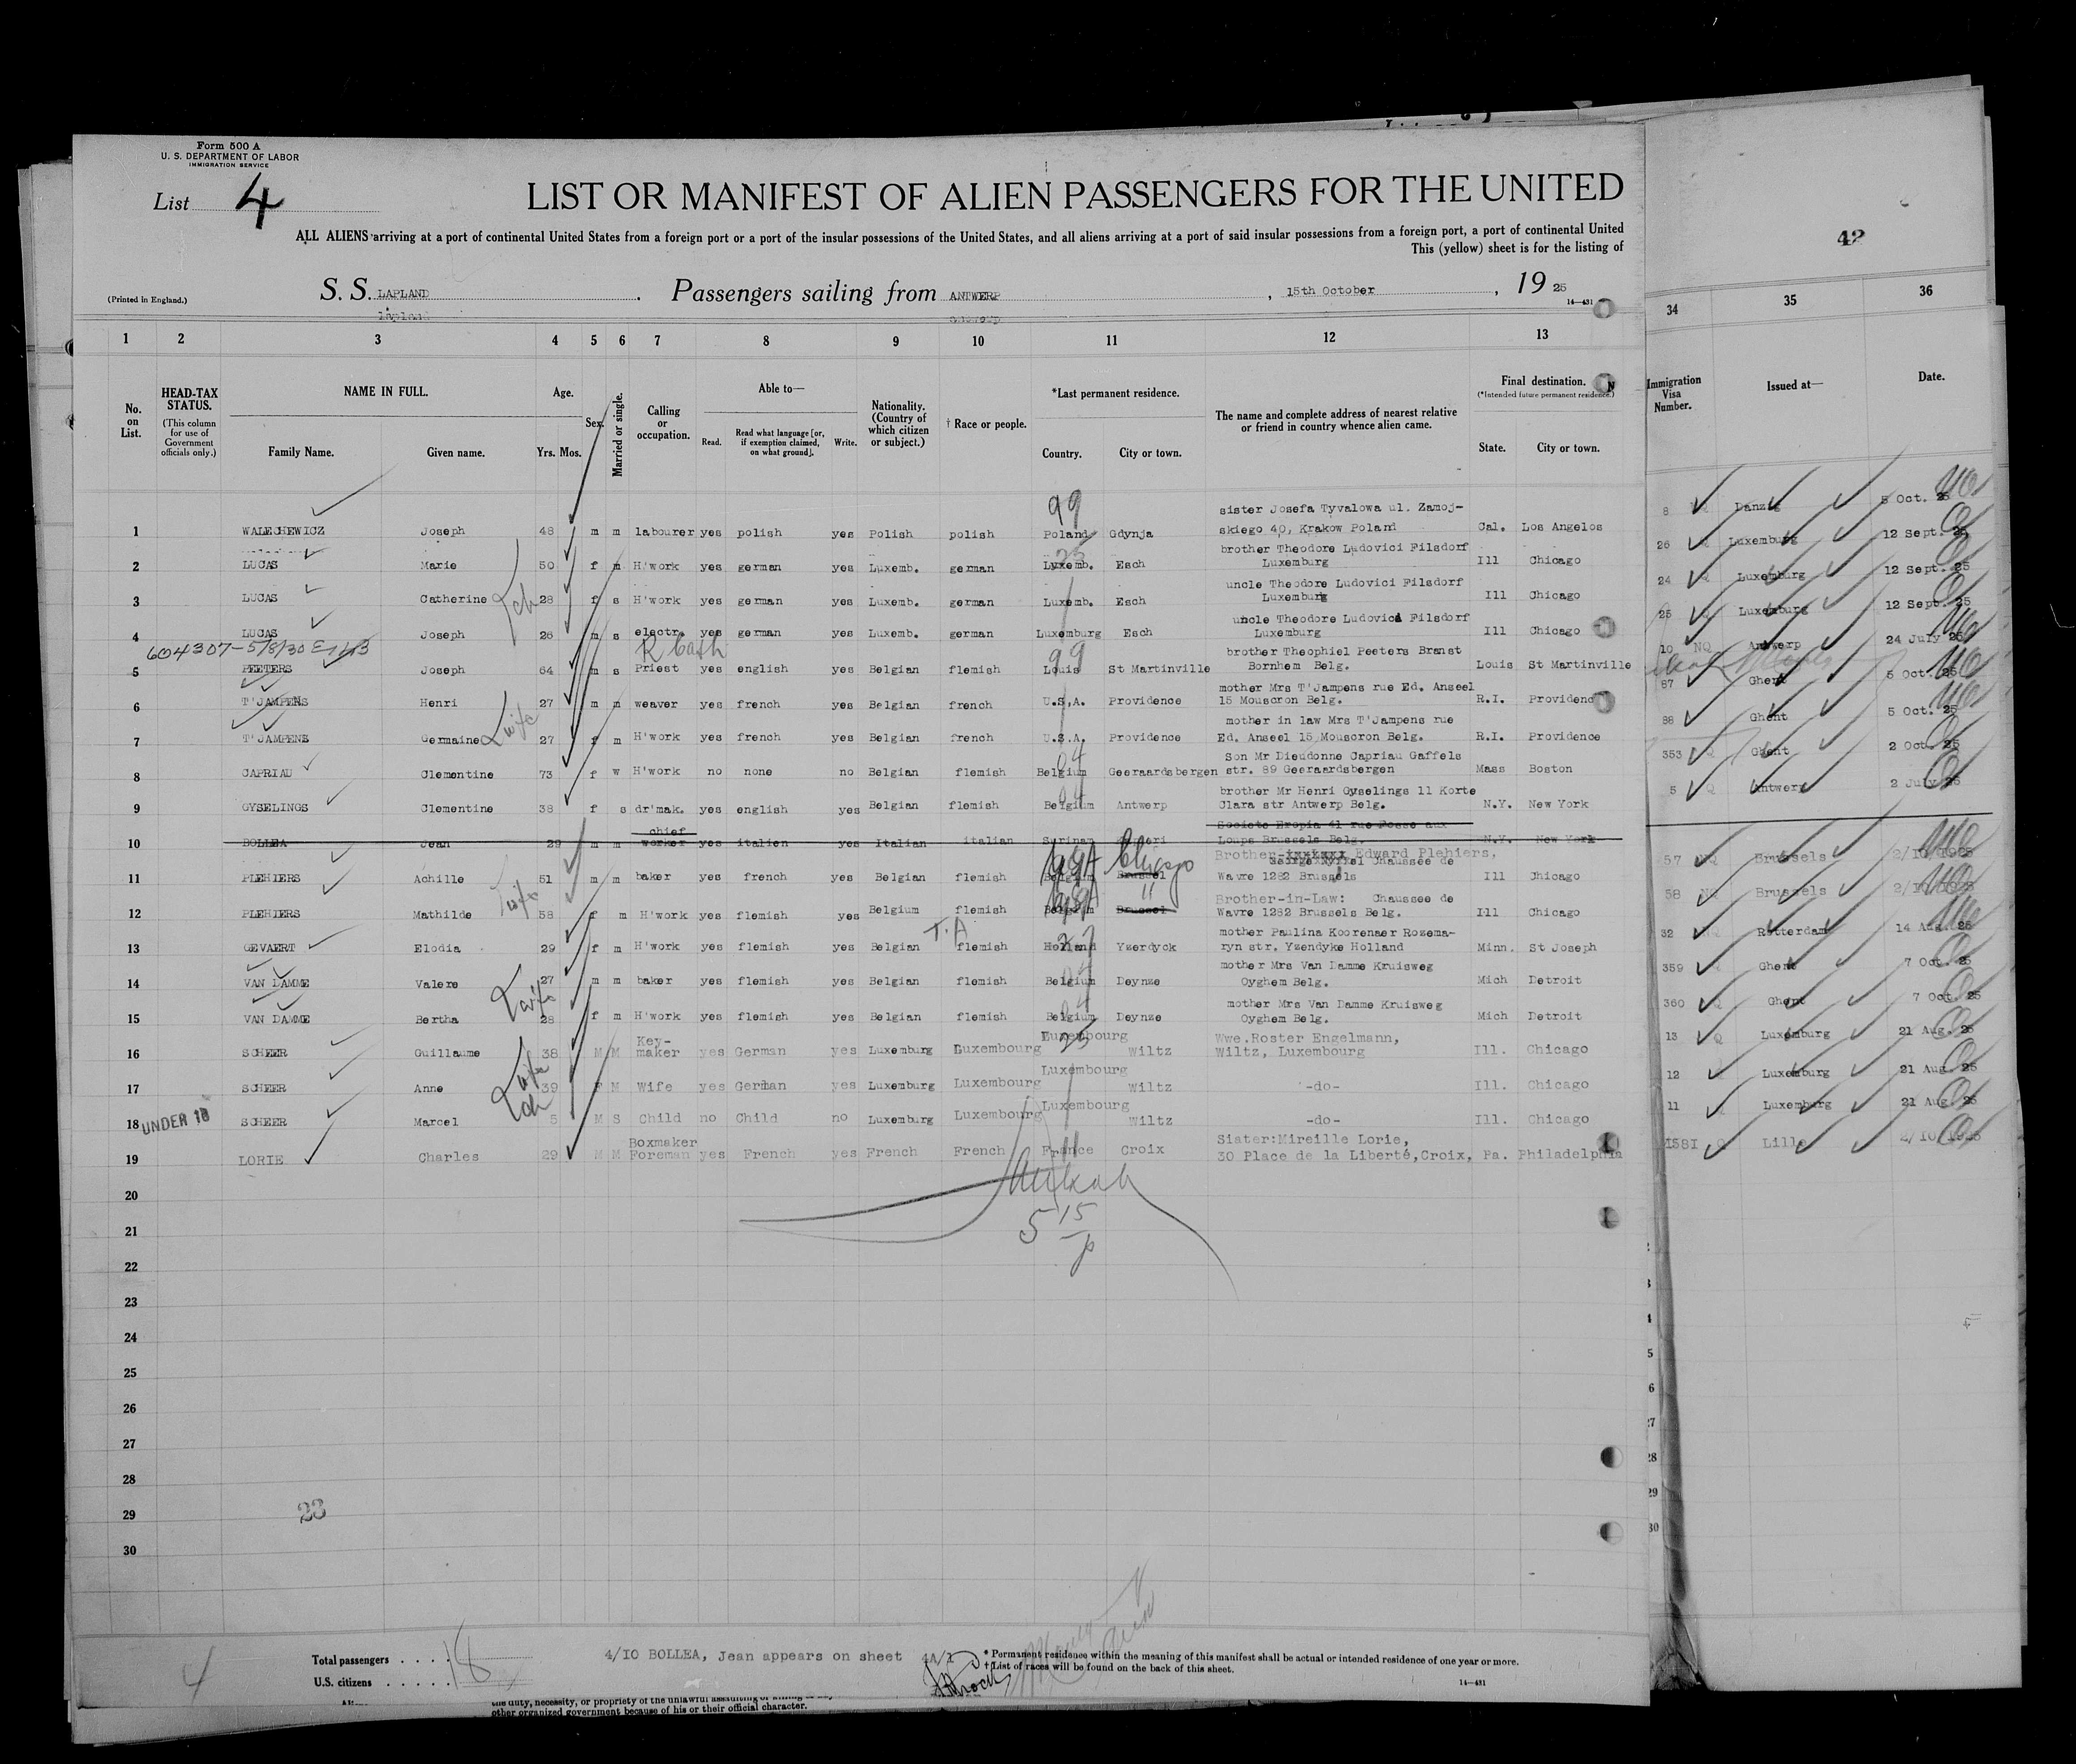 Form 500 A
U. S. DEPARTMENT OF LABOR
IMMIGRATION SERVICE
List 4
LIST OR MANIFEST OF ALIEN PASSENGERS FOR THE UNITED
ALL ALIENS arriving at a port of continental United States from a foreign port or a port of the insular possessions of the United States, and all aliens arriving at a port of said insular possessions from a foreign port, a port of continental United
This (yellow) sheet is for the listing of
42
(Printed in England.) S. S. LAPLAND. Passengers sailing from ANTWERP, 15th October, 19 25
14—431
1 2 3 4 5 6 7 8 9 10 11 12 13 34 35 36
No. on List.
HEAD-TAX STATUS.
(This column for use of Government officials only.)
NAME IN FULL.
Family Name. Given name.
Age.
Yrs. Mos.
Sex.
Married or single.
Calling or occupation.
Able to—
Read. Read what language [or, if exemption claimed, on what ground]. Write.
Nationality. (Country of which citizen or subject.)
† Race or people.
*Last permanent residence.
Country. City or town.
The name and complete address of nearest relative or friend in country whence alien came.
Final destination.
(*Intended future permanent residence.)
State. City or town.
Immigration Visa Number.
Issued at—
Date.
99
sister Josefa Tyvalowa ul. Zamoj-
1 WALECHEWICZ Joseph 48 m m labourer yes polish yes Polish polish Poland Gdynja skiego 40, Krakow Poland Cal. Los Angelos 8 Danzig 5 Oct. 25
25
brother Theodore Ludovici Filsdorf
2 LUCAS Marie 50 f m H'work yes german yes Luxemb. german Luxemb. Esch Luxemburg Ill Chicago 26 Luxemburg 12 Sept. 25
uncle Theodore Ludovici Filsdorf
3 LUCAS Catherine 28 f s H'work yes german yes Luxemb. german Luxemb. Esch Luxemburg Ill Chicago 24 Q Luxemburg 12 Sept. 25
uncle Theodore Ludovici Filsdorf
4 LUCAS Joseph 26 m s electr. yes german yes Luxemb. german Luxemburg Esch Luxemburg Ill Chicago 25 Q Luxemburg 12 Sept. 25
604307-5/8/30
99
brother Theophiel Peeters Branst
5 PEETERS Joseph 64 m s Priest yes english yes Belgian flemish Louis St Martinville Bornhem Belg. Louis St Martinville 10 NQ Antwerp 24 July 25
mother Mrs T'Jampens rue Ed. Anseel
6 T'JAMPENS Henri 27 m m weaver yes french yes Belgian french U.S.A. Providence 15 Mouscron Belg. R.I. Providence 87 Ghent 5 Oct. 25
mother in law Mrs T'Jampens rue
7 T'JAMPENS Germaine wife 27 f m H'work yes french yes Belgian french U.S.A. Providence Ed. Anseel 15 Mouscron Belg. R.I. Providence 88 Ghent 5 Oct. 25
04
Son Mr Dieudonne Capriau Gaffels
8 CAPRIAU Clementine 73 f w H'work no none no Belgian flemish Belgium Geeraardsbergen str. 89 Geeraardsbergen Mass Boston 353 Q Ghent 2 Oct. 25
04
brother Mr Henri Gyselings 11 Korte
9 GYSELINGS Clementine 38 f s dr'mak. yes english yes Belgian flemish Belgium Antwerp Clara str Antwerp Belg. N.Y. New York 5 Q Antwerp 2 July 25
chief
Societe Eropia 41 rue Fosse aux
10 BOLLEA Jean 29 m m worker yes italien yes Italian italian Surinam Loups Brussels Belg. N.Y. New York
USA Chicago
Brother Edward Plehiers,
11 PLEHIERS Achille 51 m m baker yes french yes Belgian flemish Belgium Brussel Chaussee de Wavre 1282 Brussels Ill Chicago 57 NQ Brussels 2/10/1925
USA "
Brother-in-Law: Chaussee de
12 PLEHIERS Mathilde wife 58 f m H'work yes flemish yes Belgium flemish Belgium Brussel Wavre 1282 Brussels Belg. Ill Chicago 58 NQ Brussels 2/10/1925
T.A
mother Paulina Koorenaer Rozema-
13 GEVAERT Elodia 29 f m H'work yes flemish yes Belgian flemish Holland Yzerdyck ryn str. Yzendyke Holland Minn. St Joseph 32 NQ Rotterdam 14 Aug. 25
mother Mrs Van Damme Kruisweg
14 VAN DAMME Valere 27 m m baker yes flemish yes Belgian flemish Belgium Deynze Oyghem Belg. Mich Detroit 359 Ghent 7 Oct. 25
mother Mrs Van Damme Kruisweg
15 VAN DAMME Bertha wife 28 f m H'work yes flemish yes Belgian flemish Belgium Deynze Oyghem Belg. Mich Detroit 360 Q Ghent 7 Oct. 25
Key- Luxembourg Wwe.Roster Engelmann,
16 SCHEER Guillaume 38 M M maker yes German yes Luxemburg Luxembourg 25 Wiltz Wiltz, Luxembourg Ill. Chicago 13 Q Luxemburg 21 Aug. 25
Luxembourg
17 SCHEER Anne wife 39 F M Wife yes German yes Luxemburg Luxembourg Wiltz -do- Ill. Chicago 12 Luxemburg 21 Aug. 25
Luxembourg
18 UNDER 16 SCHEER Marcel ch 5 M S Child no Child no Luxemburg Luxembourg Wiltz -do- Ill. Chicago 11 Luxemburg 21 Aug. 25
Boxmaker Sister:Mireille Lorie,
19 LORIE Charles 29 M M Foreman yes French yes French French France Croix 30 Place de la Liberté,Croix, Pa. Philadelphia 1581 Q Lille 2/10/1925
20
5 15 p
21
22
23
24
25
26
27
28
29
23
30
4
Total passengers . . . . 18
U.S. citizens . . . . .
4/10 BOLLEA, Jean appears on sheet 4A/1
* Permanent residence within the meaning of this manifest shall be actual or intended residence of one year or more.
† List of races will be found on the back of this sheet.
14—431
other organized government because of his or their official character.